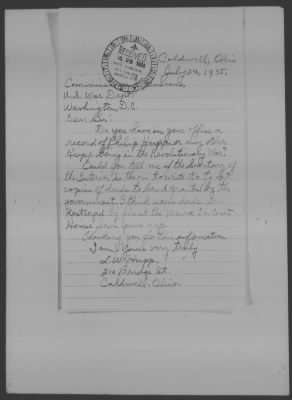 Caldwell, Ohio
July 24, 1935.
RECEIVED
Commissioner Pensions,
U.S. War Dept.
Washington D.C.
Dear Sir:
Do you have in your office a
record of Philip Hupp or any other
Hupp being in the Revolutionary War?
Could you tell me if the Secretary of
the Interior is the one to write to to get
copies of deeds to land granted by the
government. I think some deeds
destroyed by fire at the Monroe Co. Court
House years ago.
Thanking you for this information
I am Yours very truly
L.W. Hupp,
210 Bridge St.
Caldwell, Ohio.